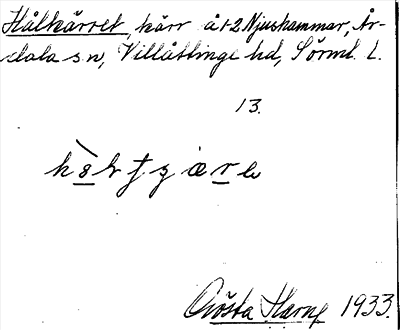 Hålkärret, kärr å 1-2 Njushammar, År-
dala sn, Villåttinge hd, Sörml. l.
13.
Gösta Harne 1933.